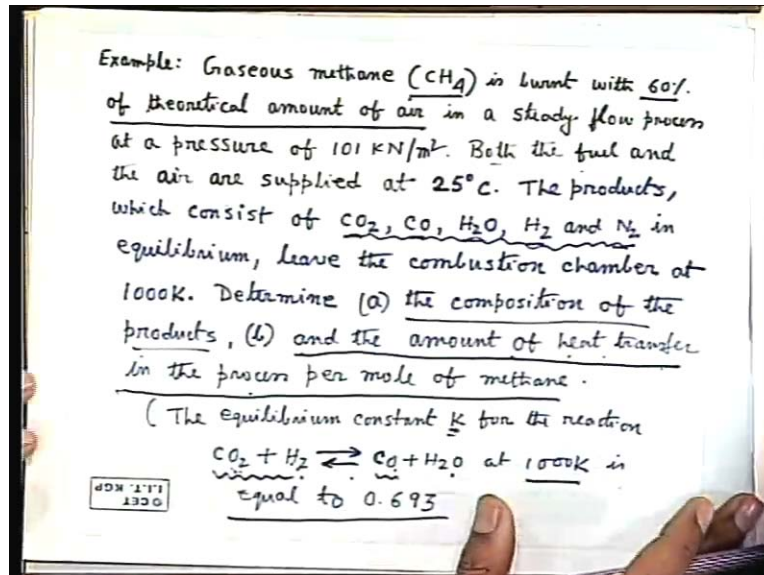 Example: Gaseous methane (CH4) is burnt with 60%
of theoretical amount of air in a steady flow process
at a pressure of 101 KN/m². Both the fuel and
the air are supplied at 25°C. The products,
which consist of CO2, CO, H2O, H2 and N2 in
equilibrium, leave the combustion chamber at
1000K. Determine (a) the composition of the
products, (b) and the amount of heat transfer
in the process per mole of methane.
(The equilibrium constant K for the reaction
CO2 + H2 ⇌ CO + H2O at 1000K is
equal to 0.693
© CET
I.I.T. KGP